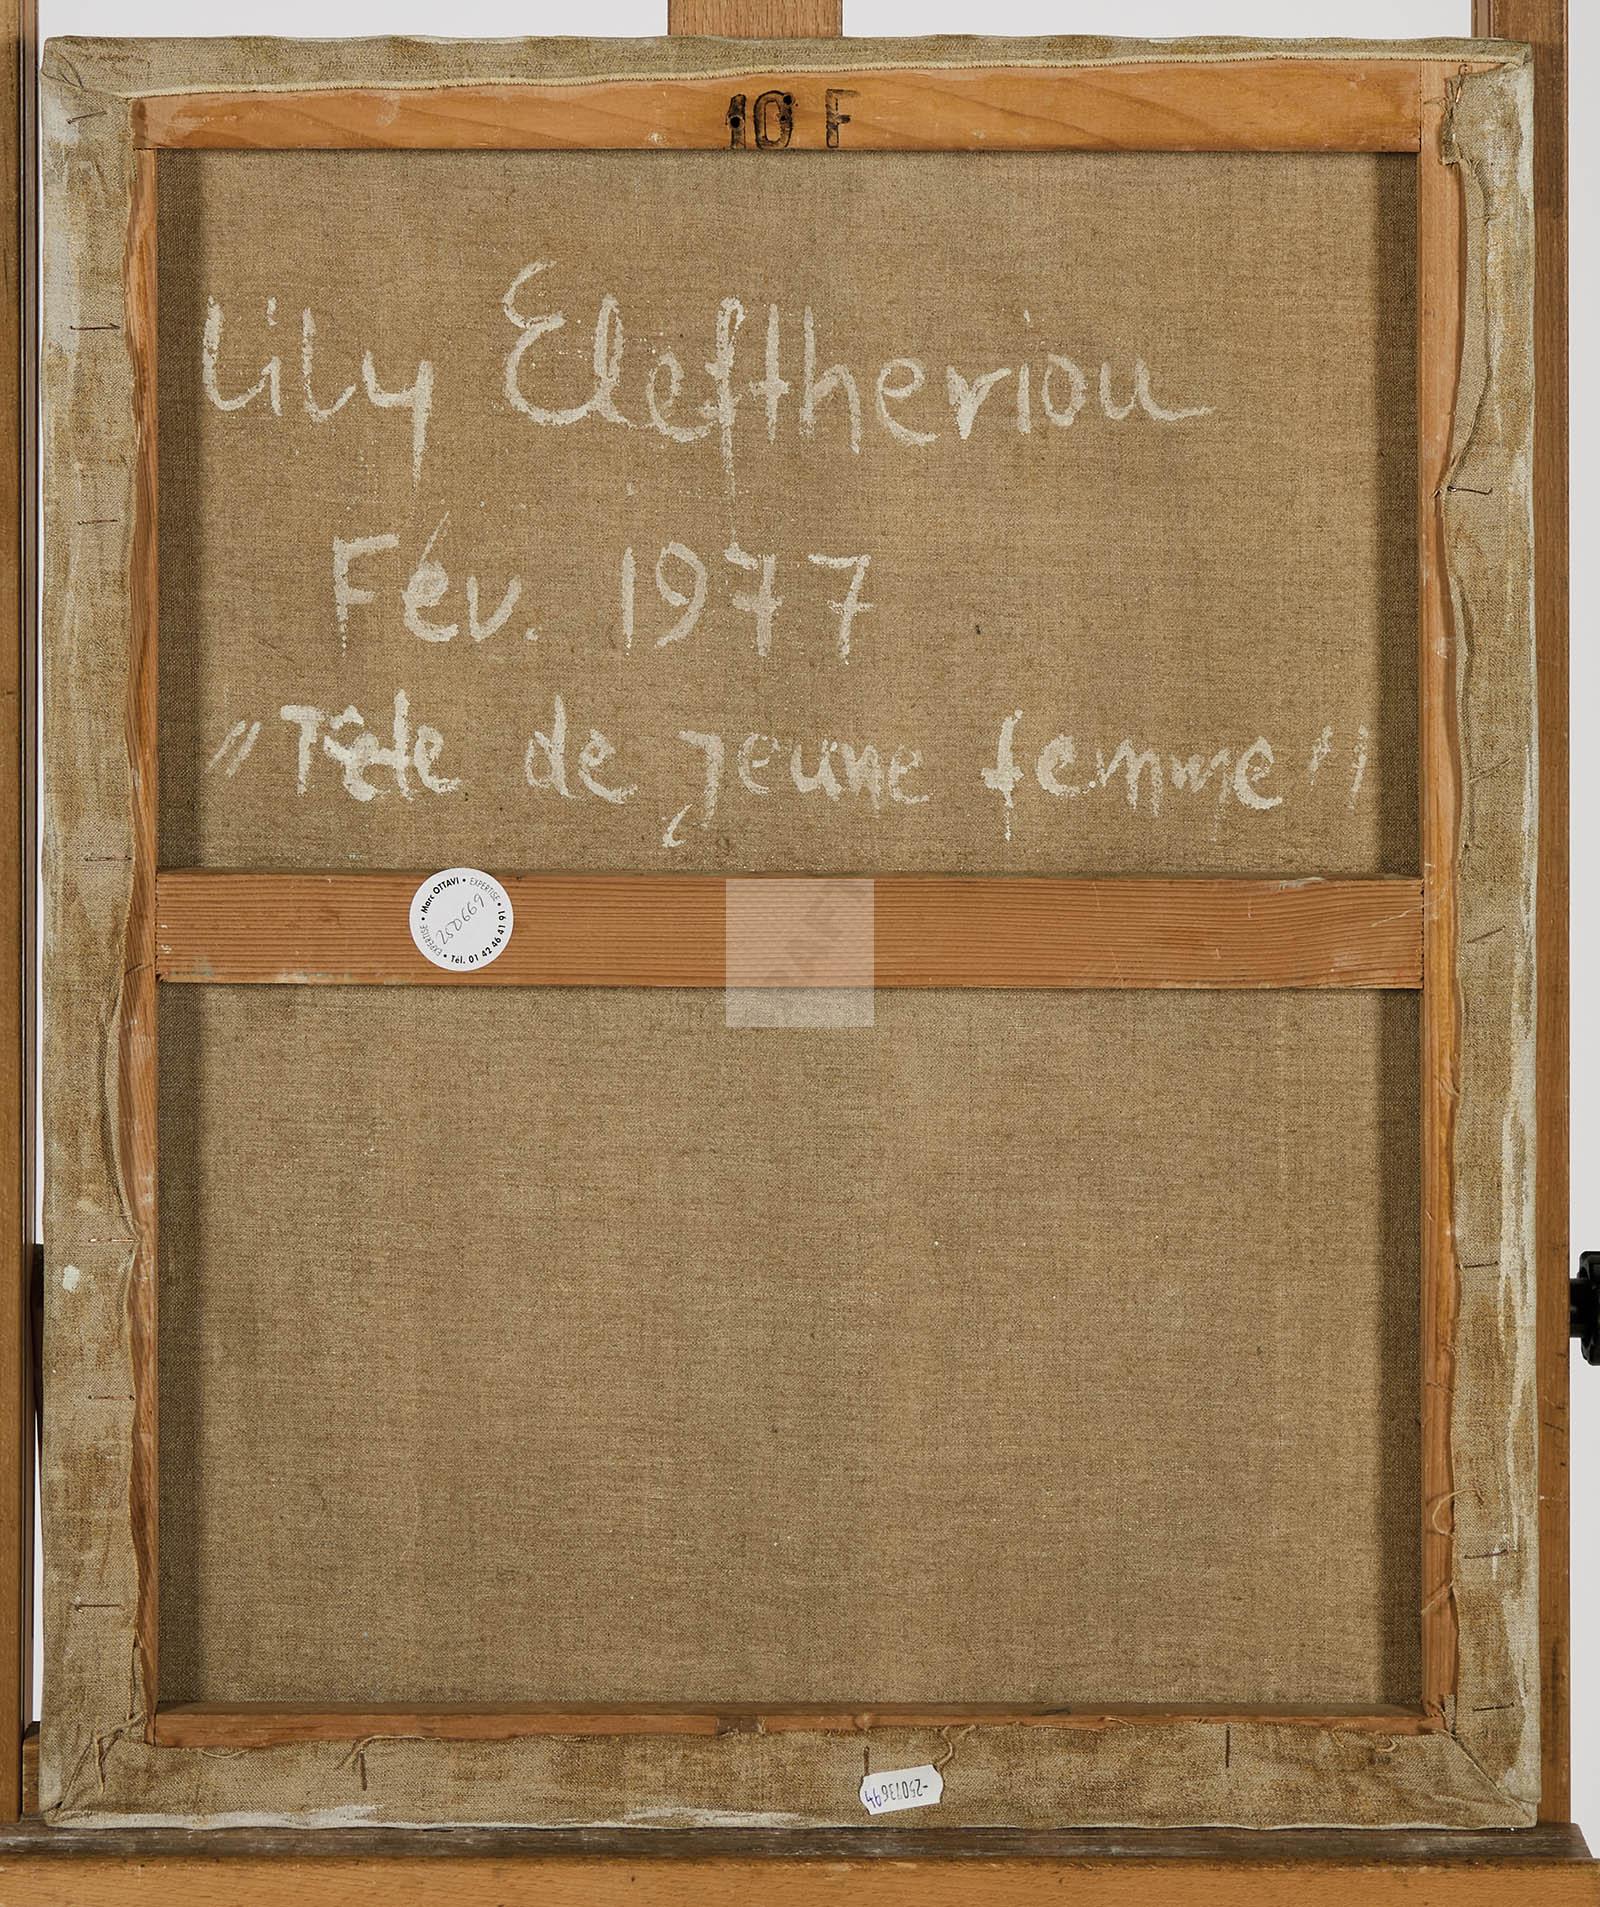 10 F
Lily Eleftheriou
Fév. 1977
"Tête de jeune femme"
• Marc OTTAVI • EXPERTISE • Tél. 01 42 46 41 91 • EXPERTISE
250669